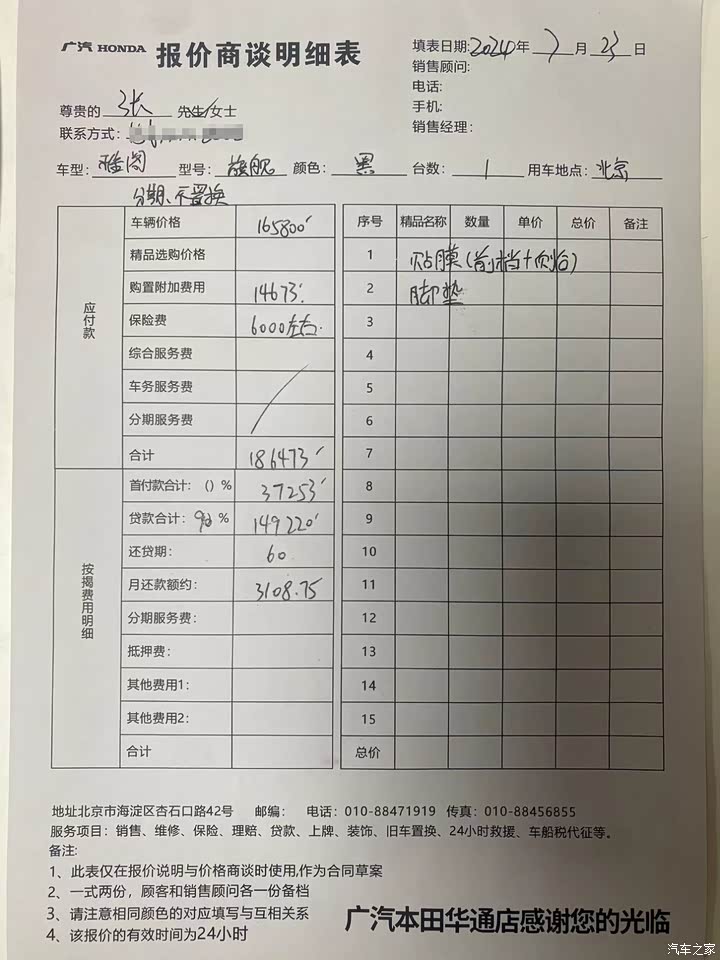 广汽 HONDA 报价商谈明细表
填表日期:2024年7月23日
销售顾问:
电话:
手机:
销售经理:
尊贵的 张 先生/女士
联系方式:
车型: 雅阁 型号: 旗舰 颜色: 黑 台数: 1 用车地点: 北京
分期、不置换
应付款
车辆价格 165800
精品选购价格
购置附加费用 14673
保险费 6000左右
综合服务费
车务服务费
分期服务费
合计 186473
按揭费用明细
首付款合计: () % 37253
贷款合计: % 149220
还贷期: 60
月还款额约: 3108.75
分期服务费:
抵押费:
其他费用1:
其他费用2:
合计
序号 精品名称 数量 单价 总价 备注
1 贴膜(前档+侧后)
2 脚垫
3
4
5
6
7
8
9
10
11
12
13
14
15
总价
地址北京市海淀区杏石口路42号 邮编: 电话:010-88471919 传真:010-88456855
服务项目: 销售、维修、保险、理赔、贷款、上牌、装饰、旧车置换、24小时救援、车船税代征等。
备注:
1、此表仅在报价说明与价格商谈时使用,作为合同草案
2、一式两份，顾客和销售顾问各一份备档
3、请注意相同颜色的对应填写与互相关系
4、该报价的有效时间为24小时
广汽本田华通店感谢您的光临
汽车之家